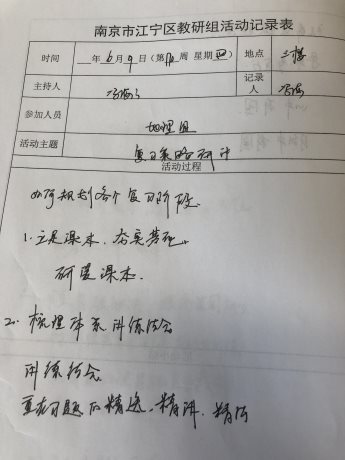 南京市江宁区教研组活动记录表
时间 __年 6 月 9 日（第 周 星期四） 地点 三楼
主持人 记录人
参加人员 地理组
活动主题 复习策略研讨
活动过程
如何规划各个复习阶段.
1. 立足课本、夯实基础.
研读课本.
2. 梳理体系 讲练结合
讲练结合
重在习题的精选、精讲、精